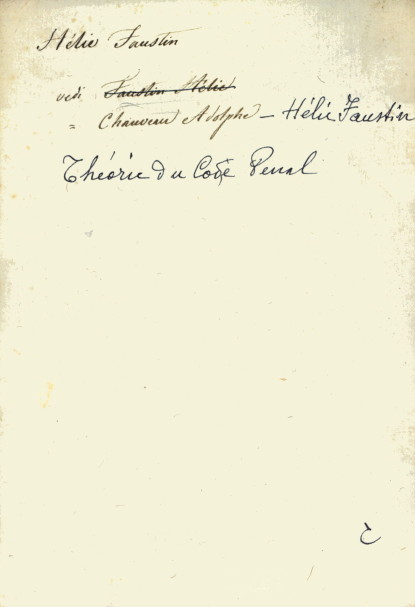 Hélie Faustin
vedi Faustin Hélie
= Chauveau Adolphe - Hélie Faustin
Théorie du Code Penal